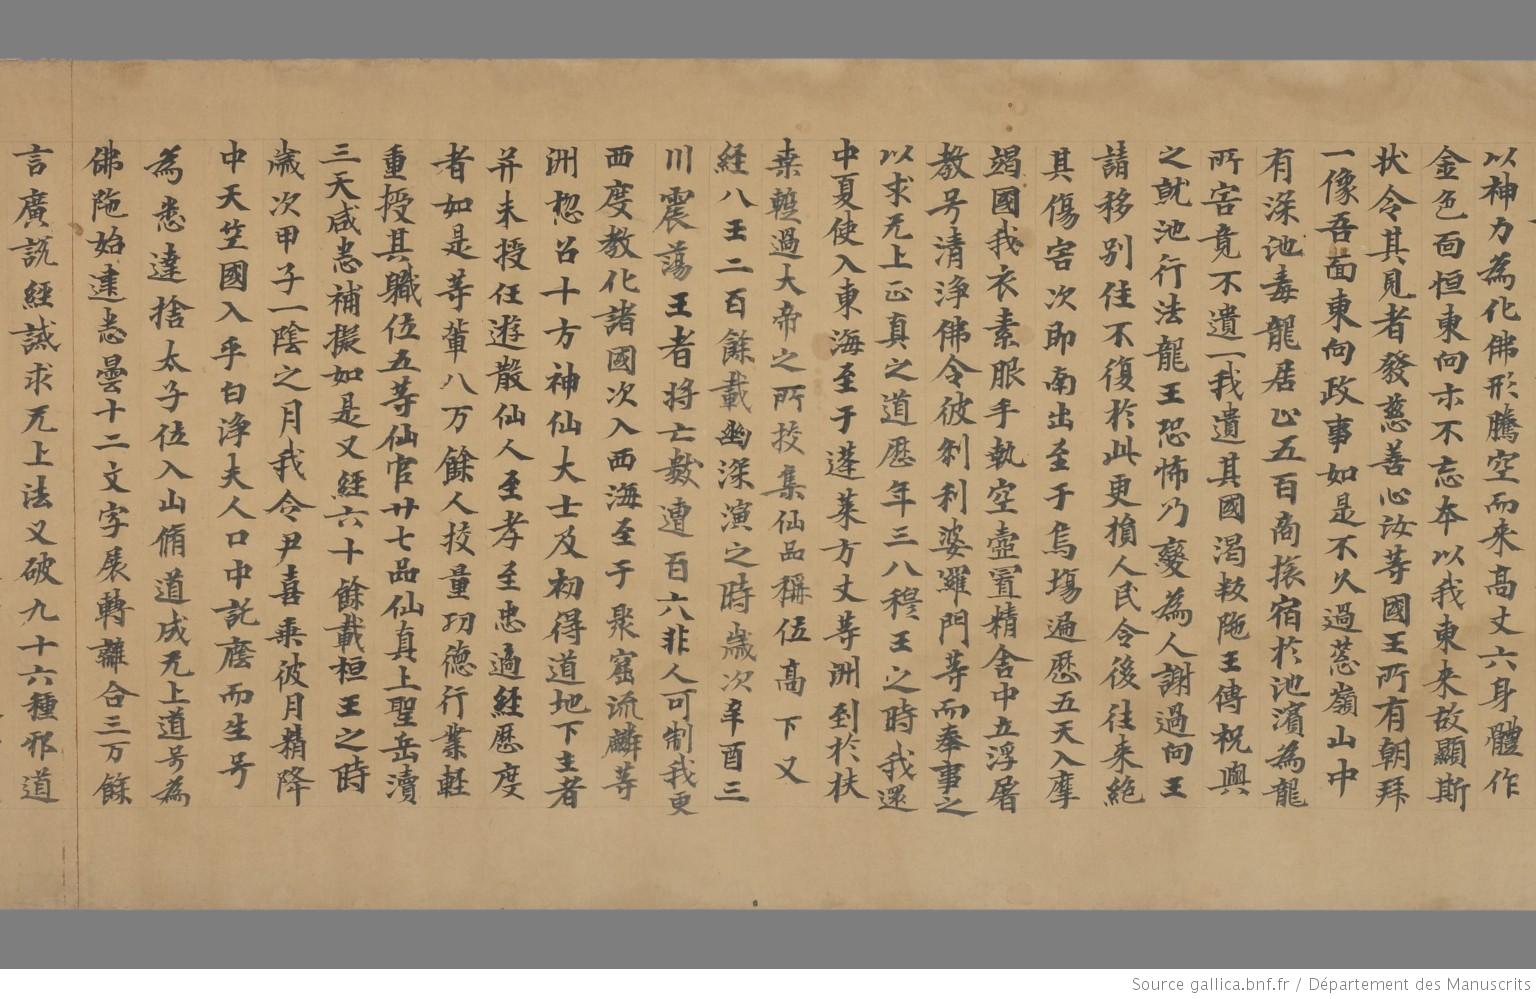 以神力為化佛形騰空而来高丈六身體作
金色面恒東向示不忘本以我東来故顯斯
状令其見者發慈善心汝等國王所有朝拜
一像吾面東向政事如是不久過葱嶺山中
有深池毒龍居止五百商旅宿於池濱為龍
所害竟不遺一我遣其國渇叛陁王傳祝與
之就池行法龍王恐怖乃變為人謝過向王
請移别住不復於此更損人民令後往来絶
其傷害次即南出至于烏塲遍歷五天入摩
竭國我衣素服手執空壺置精舍中立浮屠
教号清浄佛令彼刹利婆羅門等而奉事之
以求无上正真之道歷年三八穆王之時我還
中夏使入東海至于蓬莱方丈等洲到於扶
桒蹔過大帝之所挍集仙品稱位高下又
經八王二百餘載幽深演之時歳次辛酉三
川震蕩王者将亡數遭百六非人可制我更
西度教化諸國次入西海至于聚窟流麟等
洲惣召十方神仙大士及初得道地下主者
并未授任遊散仙人至孝至忠適經歷度
者如是等軰八万餘人挍量功德行業軽
重授其職位五等仙官廿七品仙真上聖岳瀆
三天咸悉補擬如是又經六十餘載桓王之時
歳次甲子一隂之月我令尹喜乗彼月精降
中天竺國入乎白浄夫人口中託廕而生号
為悉達捨太子位入山脩道成无上道号為
佛陁始建悉曇十二文字展轉離合三万餘
言廣説經誡求无上法又破九十六種邪道
Source gallica.bnf.fr / Département des Manuscrits